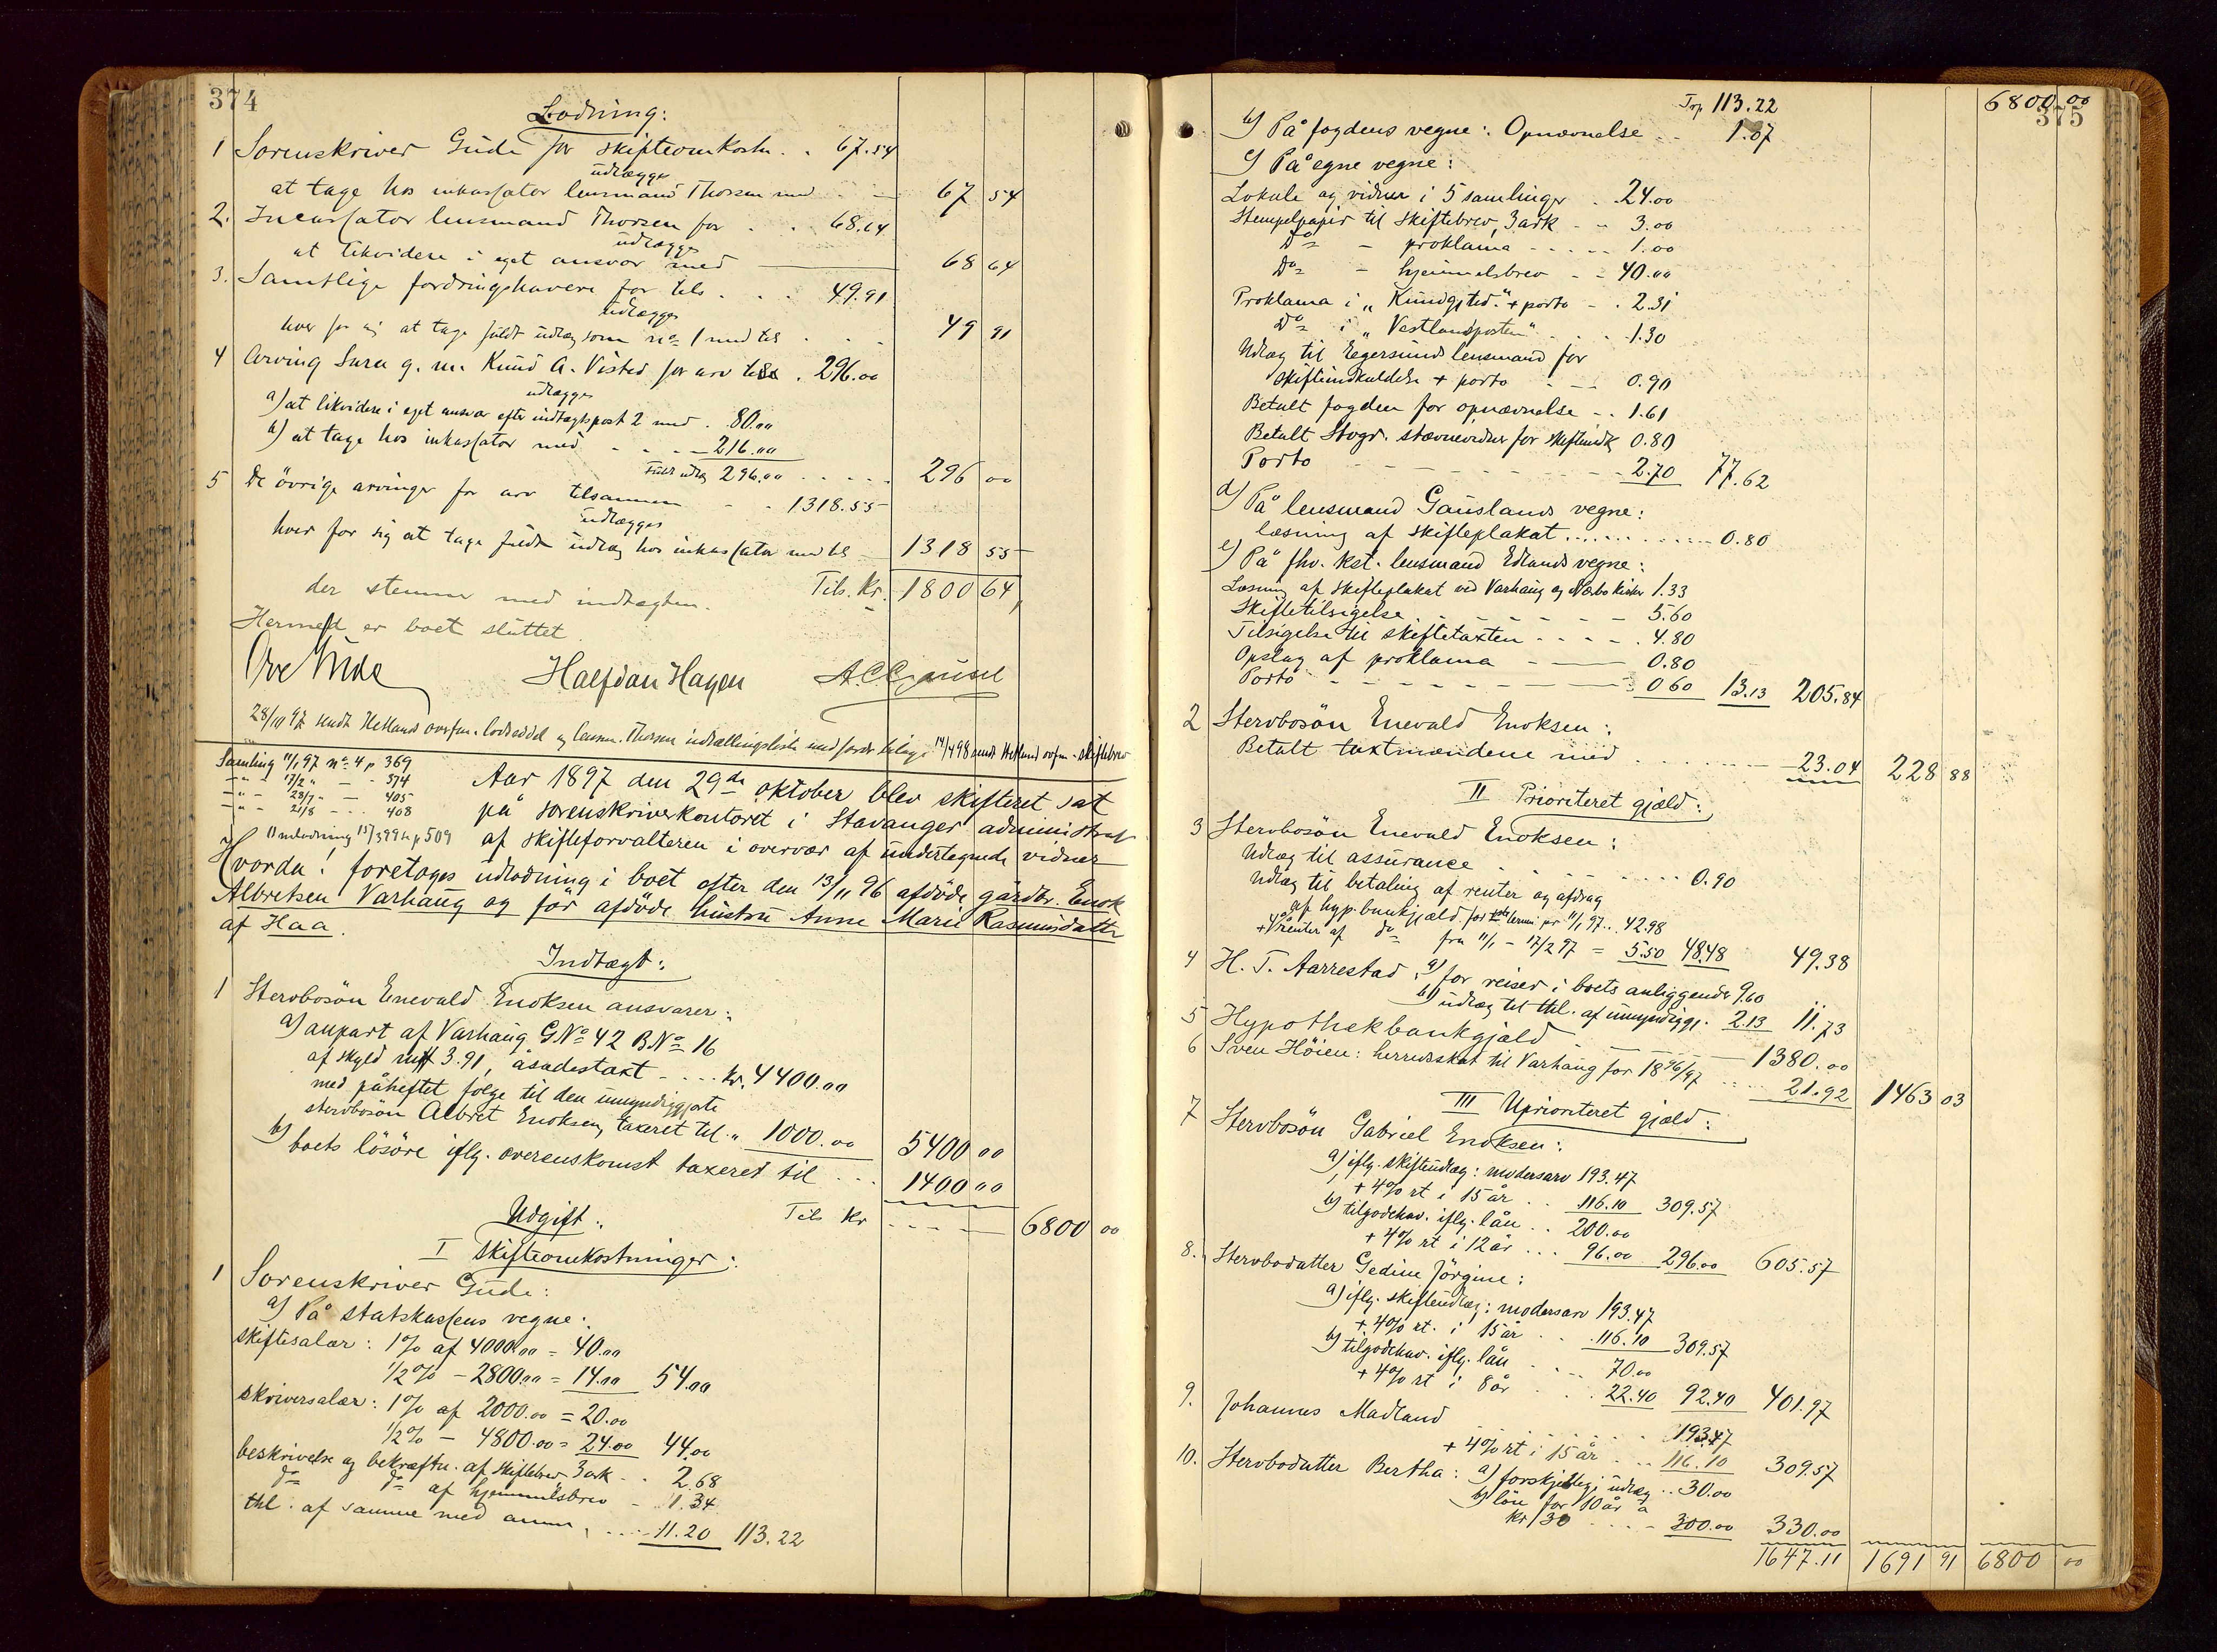 374
Lodning:
1 Sorenskriver Gude for skifteomkostn. . 67.54
udlægges
at tage hos inkassator lensmand Thorsen med - 67 54
2. Incassator lensmand Thorsen for . . 68.64
udlægges
at likvidere i eget ansvar med 68 64
3. Samtlige fordringshavere for tils. . . . 49.91
udlægges
hver for sig at tage fuldt udlæg som no 1 med tils . . . 49 91
4 Arving Sara g. m. Knud A. Visted for arv tils . 296.00
udlægges
a) at likvidere i eget ansvar efter indtægtspost 2 med . 80.00
b) at tage hos inkassator med - - - - 216.00
Fuldt udlæg 296.00 . . . . . 296 00
5 De övrige arvinger for arv tilsammen - - 1318.55
udlægges
hver for sig at tage fuldt udlæg hos inkassator med tils 1318 55
Tils. Kr. 1800 64
der stemmer med indtægten.
Hermed er boet sluttet.
Ove Gude Halfdan Hagen
28/10 97 sendt Hetlands overfm. lodseddel og lensm. Thorsen indkallingsliste med bilage 14/4 98 sendt Hetland ovfm - skiftebrev
Samling 11/1 97 no 4 p 369
-"- - 17/2 " - - 374
-"- - 28/7 - - 405
-"- - 21/8 - - - 408
Omlodning 15/3 99 p 509
Aar 1897 den 29de oktober blev skifteret sat
på sorenskriverkontoret i Stavanger administreret
af skifteforvalteren i overvær af undertegnede vidner
Hvorda! foretoges udlodning i boet efter den 13/11 96 afdöde gårdbr. Enok
Albretsen Varhaug og för afdöde hustru Anne Marie Rasmusdatter
af Haa.
Indtægt:
1 Stervbosön Enevald Enoksen ansvarer:
a) anpart af Varhaug G.No 42 B.No 16
af skyld mk 3.91, åsædestaxt - . . . kr. 4400.00
med påheftet folge til den umyndiggjorte
stervbosön Albret Enoksen, taxeret til " 1000.00 5400 00
b) boets lösöre iflg. overenskomst taxeret til . . . 1400 00
Tils Kr - - - - 6800 00
Udgift:
I Skifteomkostninger:
1 Sorenskriver Gude:
a) På statskassens vegne:
skiftesalær: 1% af 4000.00 = 40.00
1/2% - 2800.00 = 14.00 54.00
skriversalær: 1% af 2000.00 = 20.00
1/2% - 4800.00 = 24.00 44.00
beskrivelse og bekræftn. af skiftebrev 3 ark - . 2.68
do do af hjemmelsbrev - 1.34
thl. af samme med anm. . . . . 11.20 113.22
375
Trp 113.22 6800 00
b) På fogdens vegne: Opnævnelse . . 1.07
c) På egne vegne:
Lokale og vidner i 5 samlinger . . 24.00
Stempelpapir til skiftebrev, 3 ark - - 3.00
Do - proklama - - - - - 1.00
Do - hjemmelsbrev - - 40.00
Proklama i "Kundg.tid." + porto - . 2.31
Do i "Vestlandsposten" . . . . 1.30
Udlæg til Egersunds lensmand for
skifteindkaldelse + porto . - - 0.90
Betalt fogden for opnævnelse - . 1.61
Betalt Stvgr. stævnevidner for skifteindk 0.80
Porto - - - - - - - - 2.70 77.62
d) På lensmand Gauslands vegne:
læsning af skifteplakat . . . . . . . . . . . 0.80
e) På fhv. kst. lensmand Edlands vegne:
Læsning af skifteplakat ved Varhaug og Nærbo kirker 1.33
Skiftetilsigelse . . . . . . . 5.60
Tilsigelse til skiftetaxten - - - - . 4.80
Opslag af proklama - - 0.80
Porto - - - - - - - - 0 60 13.13 205.84
2 Stervbosön Enevald Enoksen:
Betalt taxtmændene med . . . . . . 23.04 228 88
II Prioriteret gjæld:
3 Stervbosön Enevald Enoksen:
Udlæg til assurance . . . . . . . . 0.90
Udlæg til betaling af renter og afdrag
af hyp.bankgjæld for termin pr 11/1 97 . . 42.98
+ 4% renter af do fra 11/1 - 17/2 97 = 5.50 48.48 49.38
4 H. T. Aarrestad, a) for reiser i boets anliggende 9.60
b) udlæg til thl. af umyndiggj. 2.13 11.73
5 Hypothekbankgjæld - - - - - 1380.00
6 Sven Höien: herredsskat til Varhaug for 1896/97 . . . . . 21.92 1463 03
III Uprioriteret gjæld:
7 Stervbosön Gabriel Enoksen:
a) iflg. skifteudlæg: modersarv 193.47
+ 4% rt i 15 år . . 116.10 309.57
b) tilgodehav. iflg. lån . . 200.00
+ 4% rt i 12 år . . . 96.00 296.00 605.57
8. Stervbodatter Gedine Jörgine:
a) iflg. skifteudlæg: modersarv 193.47
+ 4% rt. i 15 år . . . 116.10 309.57
b) tilgodehav. iflg. lån . . - - 70.00
+ 4% rt i 8 år . . . 22.40 92.40 401.97
9. Johannes Madland . . . . . . . 193.47
+ 4% rt i 15 år . . . 116.10 309.57
10. Stervbodatter Bertha: a) forskjellig udlæg . . 30.00
b) lön for 10 år à
kr 30 . . . - 300.00 330.00
1647.11 1691 91 6800 00